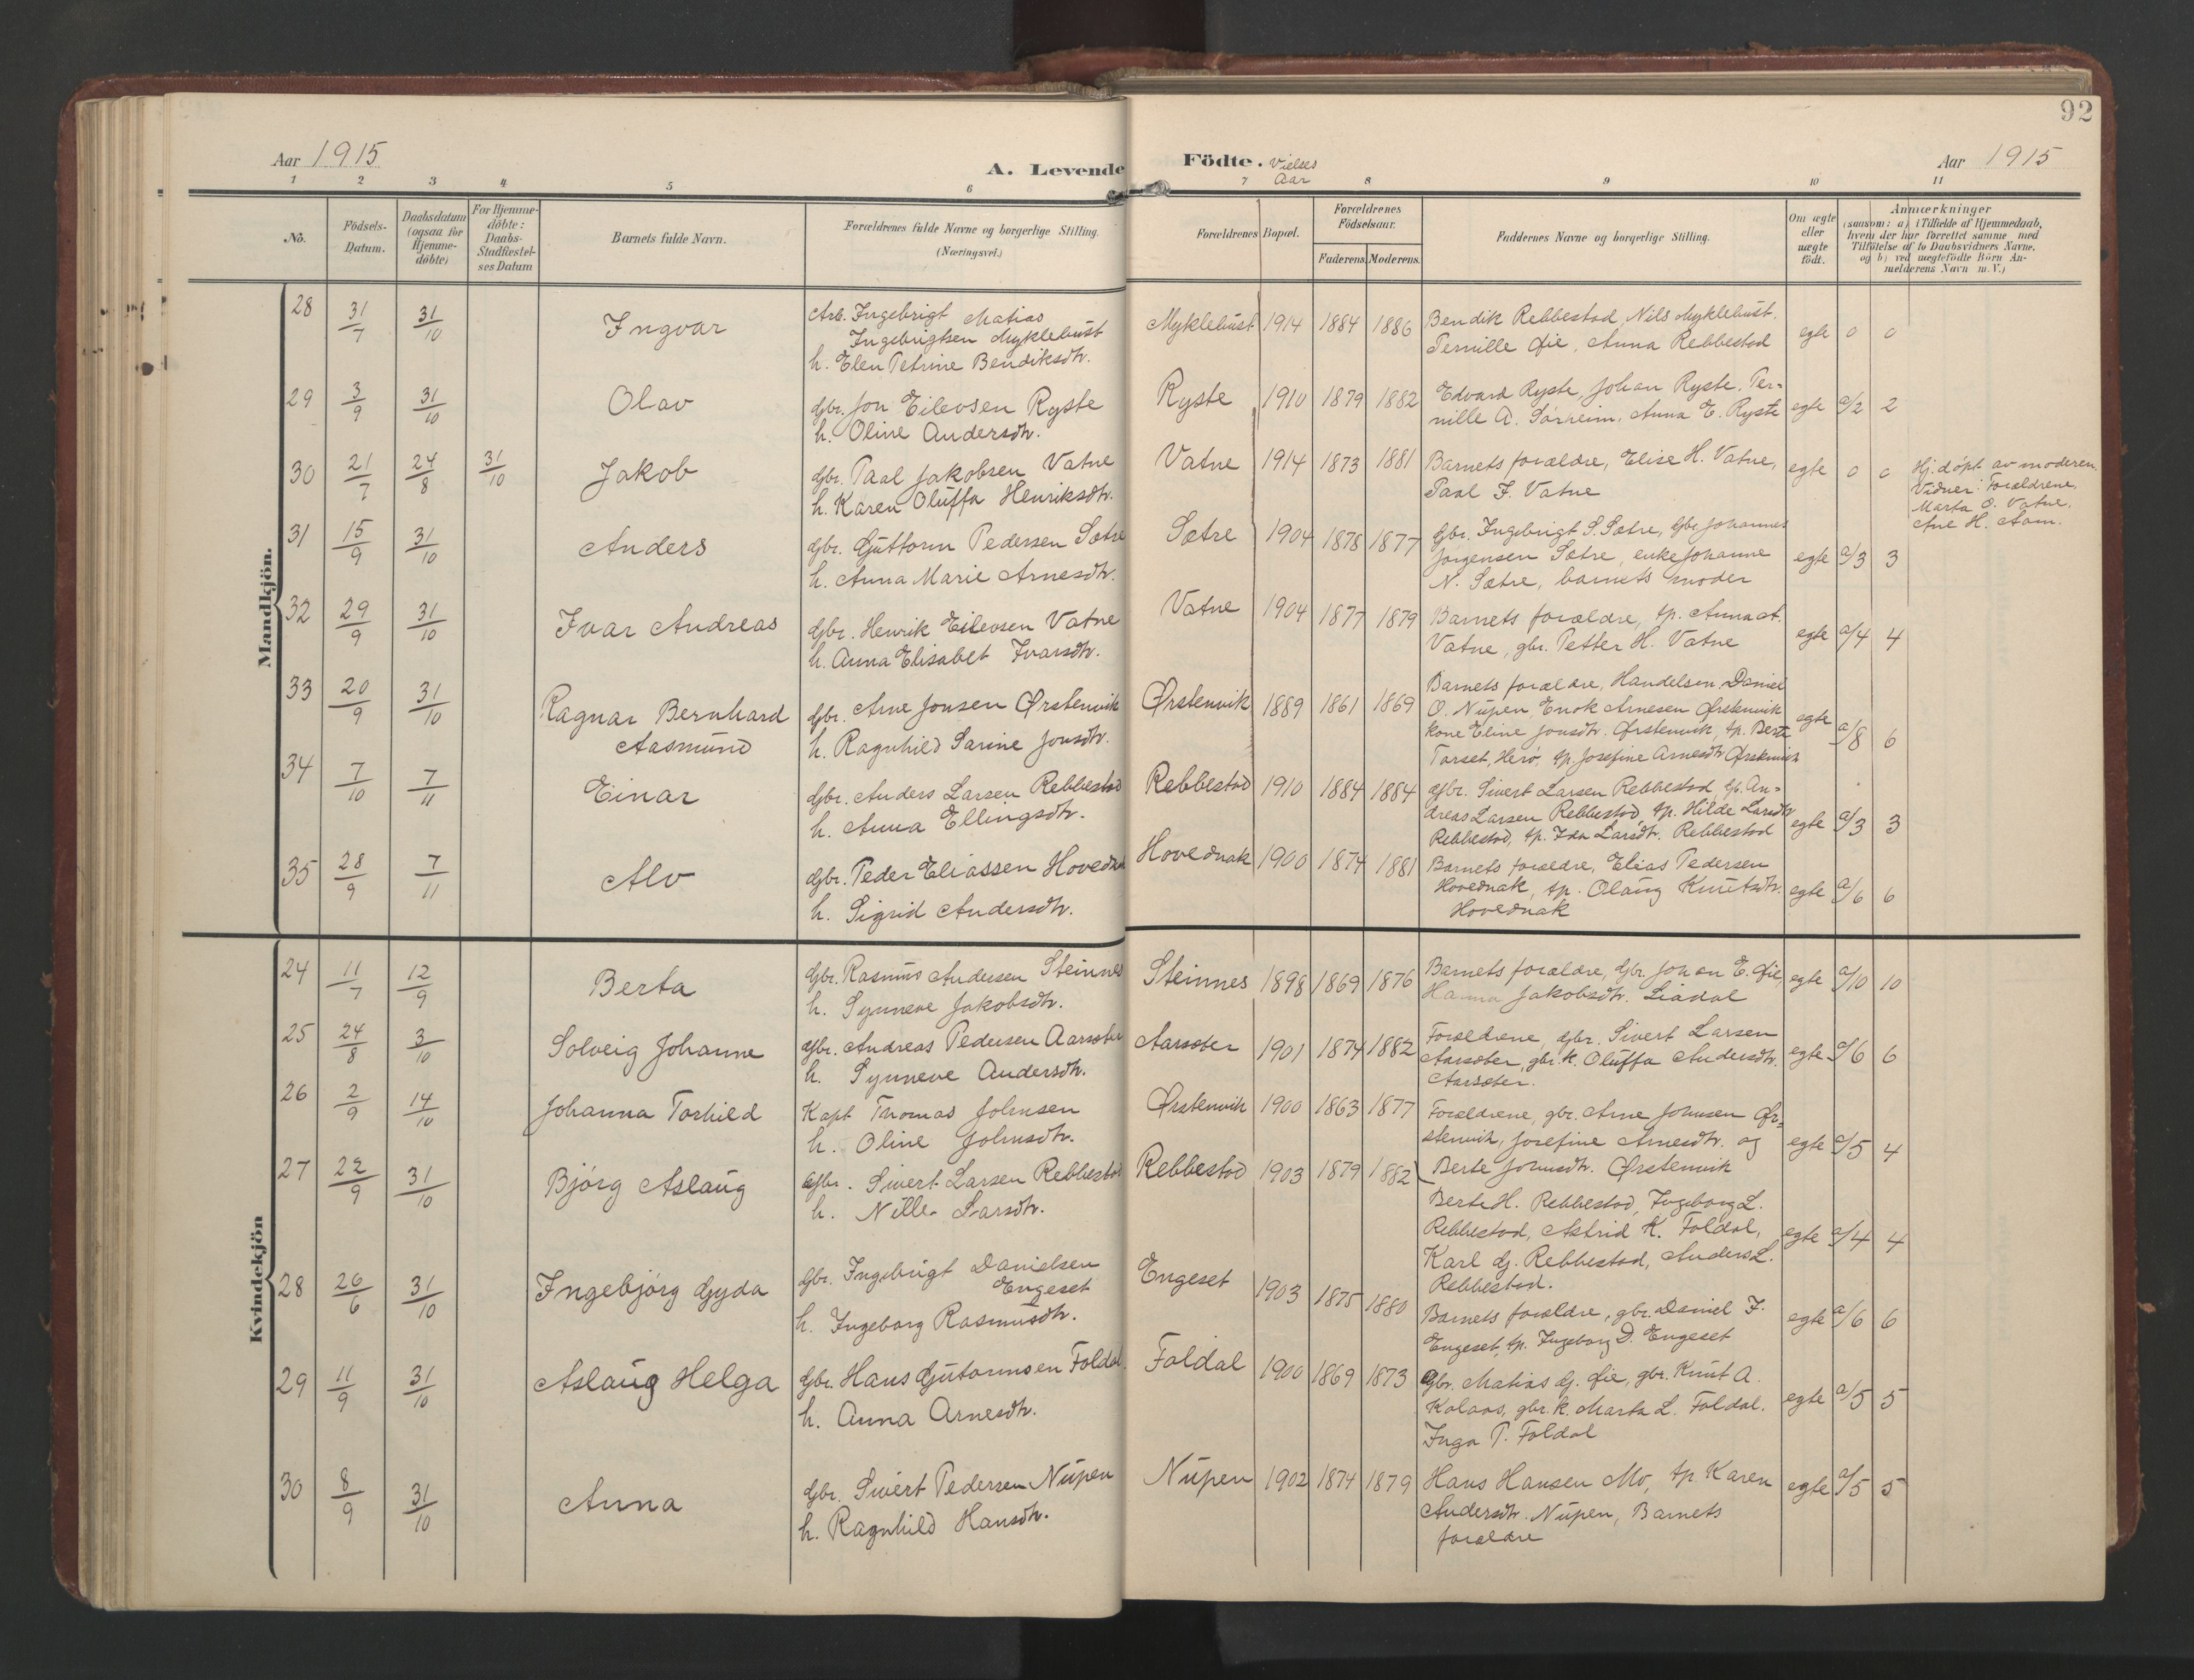 92
Aar 1915
A. Levende Födte.
Vielses Aar
Aar 1915
1 2 3 4 5 6 7 8 9 10 11
No.
Födsels-Datum.
Daabsdatum (ogsaa for Hjemme-döbte)
For Hjemme-döbte: Daabs-Stadfæstel-ses Datum
Barnets fulde Navn.
Forældrenes fulde Navne og borgerlige Stilling.
(Næringsvei.)
Forældrenes Bopæl.
Forældrenes Födselsaar.
Faderens. Moderens.
Faddernes Navne og borgerlige Stilling.
Om ægte eller uægte födt.
Anmærkninger
(saasom: a) i Tilfælde af Hjemmedaab,
hvem der har forrettet samme med
Tilföielse af to Daabsvidners Navne,
og b) ved uægtefödte Börn An-
melderens Navn m.V.)
Mandkjön.
28 31/7 31/10 Ingvar
Arb. Ingebrigt Matias
Ingebrigtsen Myklebust
h. Elen Petrine Bendiksdtr.
Myklebust 1914 1884 1886
Bendik Rebbestad, Nils Myklebust.
Pernille Øie, Anna Rebbestad
egte 0 0
29 3/9 31/10 Olav
Gbr. Jon Eilevsen Ryste
h. Oline Andersdtr.
Ryste 1910 1879 1882
Edvard Ryste, Johan Ryste, Per-
nille A. Sørheim, Anna E. Ryste
egte a/2 2
30 21/7 24/8 31/10 Jakob
Gbr. Paal Jakobsen Vatne
h. Karen Oluffa Henriksdtr.
Vatne 1914 1873 1881
Barnets forældre, Elise H. Vatne,
Paal J. Vatne
egte 0 0
Hj. døpt av moderen.
Vidner: Forældrene,
Marta O. Vatne.
Ane H. Aam.
31 15/9 31/10 Anders
Gbr. Guttorm Pedersen Sætre
h. Anna Marie Arnesdtr.
Sætre 1904 1878 1877
Gbr. Ingebrigt S. Sætre, Gbr. Johannes
Jørgensen Sætre, enke Johanne
N. Sætre, barnets moder
egte a/3 3
32 29/9 31/10 Ivar Andreas
Gbr. Henrik Eilevsen Vatne
h. Anna Elisabet Ivarsdtr.
Vatne 1904 1877 1879
Barnets forældre, tp. Anna A.
Vatne, gbr. Petter H. Vatne
egte a/4 4
33 20/9 31/10 Ragnar Bernhard
Aasmund
Gbr. Arne Jonsen Ørstenvik
h. Ragnhild Sarine Jonsdtr.
Ørstenvik 1889 1861 1869
Barnets forældre, Handelsm. Daniel
O. Nupen, Enok Arnesen Ørstenvik
kone Eline Jonsdtr. Ørstenvik, tp. Berte
Torset, Herø, tp. Josefine Arnesdtr. Ørstenvik
egte a/8 6
34 7/10 7/11 Einar
Gbr. Anders Larsen Rebbestad
h. Anna Ellingsdtr.
Rebbestad 1910 1884 1884
Gbr. Sivert Larsen Rebbestad, Gb. An-
dreas Larsen Rebbestad, tp. Hilde Larsdtr.
Rebbestad, tp. Ida Larsdtr. Rebbestad
egte a/3 3
35 28/9 7/11 Alv
Gbr. Peder Eliassen Hovednak
h. Sigrid Andersdtr.
Hovednak 1900 1874 1881
Barnets forældre, Elias Pedersen
Hovednak, tp. Olaug Knutsdtr.
Hovednak
egte a/6 6
Kvindekjön
24 11/7 12/9 Berta
Gbr. Rasmus Andersen Steinnes
h. Synneve Jakobsdtr.
Steinnes 1898 1869 1876
Barnets forældre, Gbr. Johan E. Øie,
Hanna Jakobsdtr. Liadal
egte a/10 10
25 24/8 3/10 Solveig Johanne
Gbr. Andreas Pedersen Aarsæter
h. Synneve Andersdtr.
Aarsæter 1901 1874 1882
Forældrene, gbr. Sivert Larsen
Aarsæter, gbr.k. Oluffa Andersdtr.
Aarsæter.
egte a/6 6
26 2/9 14/10 Johanna Torhild
Kapt Thomas Johnsen
h. Oline Johnsdtr.
Ørstenvik 1900 1863 1877
Forældrene, gbr. Arne Johnsen Ør-
stenvik, Josefine Arnesdtr. og
Berte Johnsdtr. Ørstenvik
egte a/5 4
27 22/9 31/10 Bjørg Aslaug
Gbr. Sivert Larsen Rebbestad
h. Nille Larsdtr.
Rebbestad 1903 1879 1882
Berte H. Rebbestad, Ingeborg L.
Rebbestad, Astrid K. Foldal,
Karl Gj. Rebbestad, Anders L.
Rebbestad.
egte a/4 4
28 26/6 31/10 Ingebjørg Gyda
Gbr. Ingebrigt Danielsen
Engeset
h. Ingeborg Rasmusdtr.
Engeset 1903 1875 1880
Barnets forældre, gbr. Daniel I.
Engeset, tp. Ingeborg D. Engeset
egte a/6 6
29 11/9 31/10 Aslaug Helga
Gbr. Hans Gutormsen Foldal
h. Anna Arnesdtr.
Foldal 1900 1869 1873
Gbr. Matias Gj. Øie, gbr. Knut A.
Kolaas, gbr.k. Marta L. Foldal,
Inga P. Foldal
egte a/5 5
30 8/9 31/10 Anna
Gbr. Sivert Pedersen Nupen
h. Ragnhild Hansdtr.
Nupen 1902 1874 1879
Hans Hansen Mo, tp. Karen
Andersdtr. Nupen, Barnets
forældre
egte a/5 5